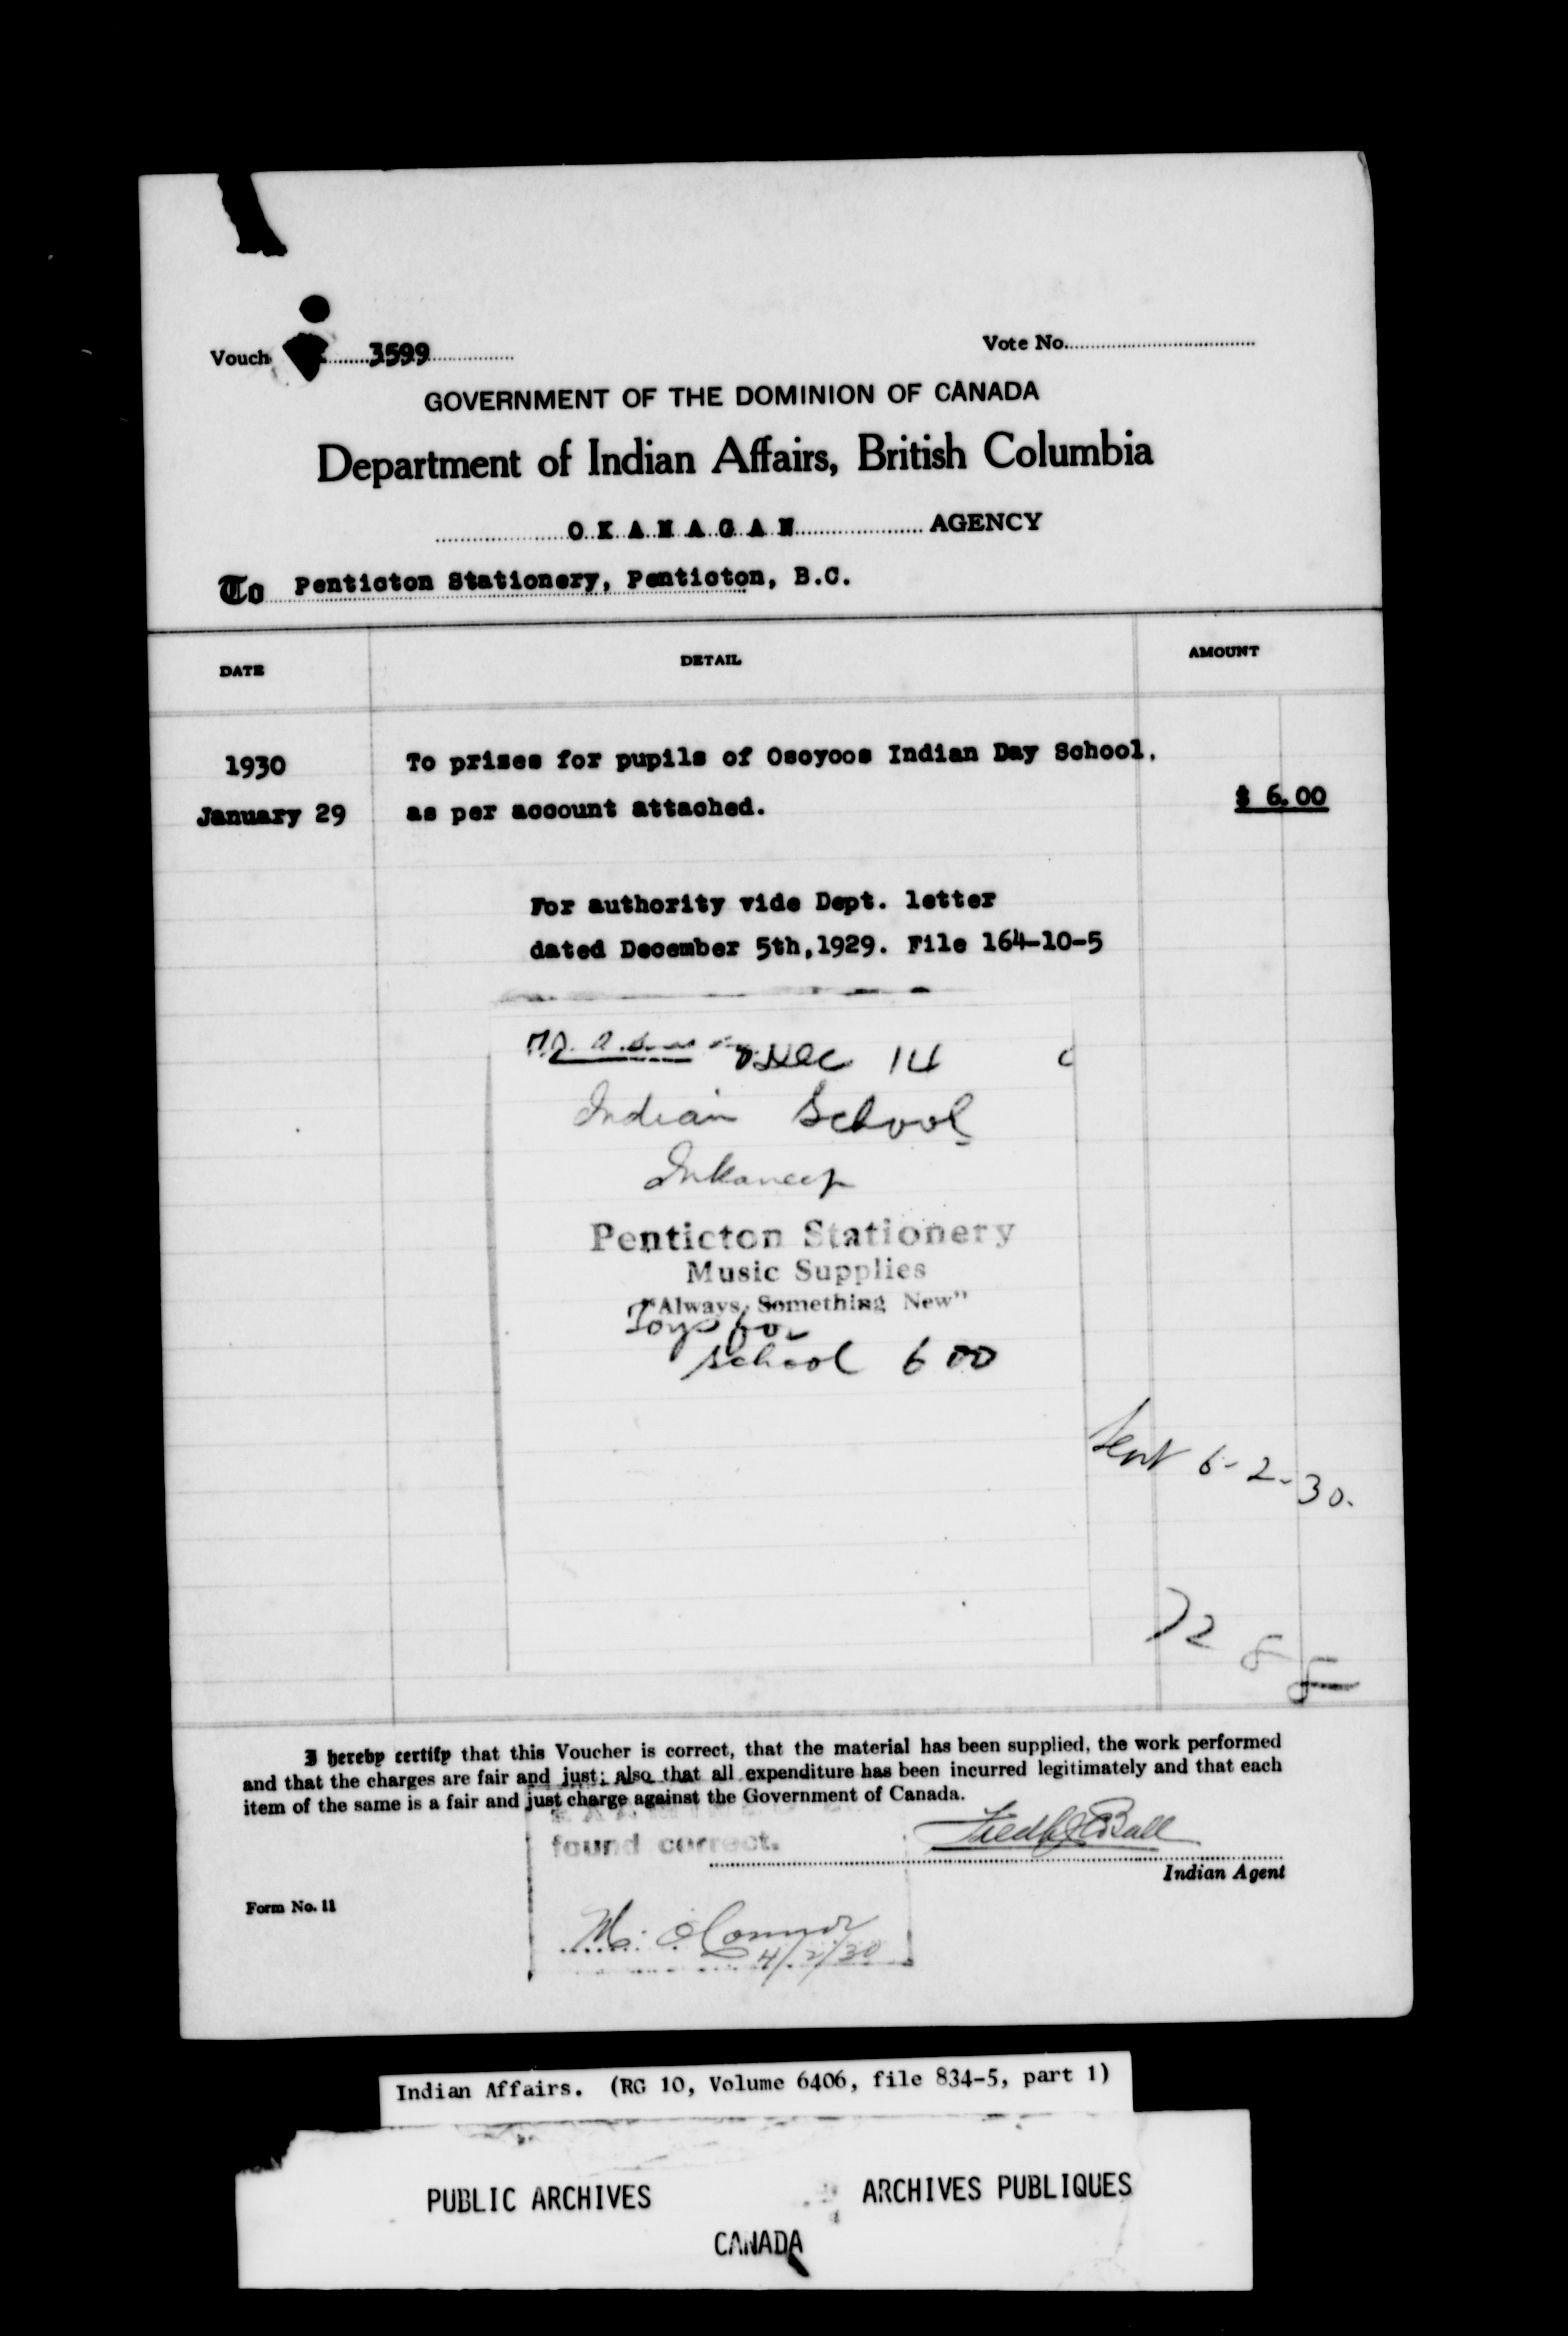 Vouch 3599
Vote No.
GOVERNMENT OF THE DOMINION OF CANADA
Department of Indian Affairs, British Columbia
O K A N A G A N AGENCY
To Penticton Stationery, Penticton, B.C.
DATE DETAIL AMOUNT
1930 To prizes for pupils of Osoyoos Indian Day School.
January 29 as per account attached. $ 6.00
For authority vide Dept. letter
dated December 5th,1929. File 164-10-5
Dec 14
Indian School
Inkaneep
Penticton Stationery
Music Supplies
"Always Something New"
Toys for
school 6 00
Sent 6-2-30.
72
I hereby certify that this Voucher is correct, that the material has been supplied, the work performed
and that the charges are fair and just; also that all expenditure has been incurred legitimately and that each
item of the same is a fair and just charge against the Government of Canada.
found correct.
Ball
Indian Agent
Form No. 11
M. O'Connor
4/2/30
Indian Affairs. (RG 10, Volume 6406, file 834-5, part 1)
PUBLIC ARCHIVES ARCHIVES PUBLIQUES
CANADA